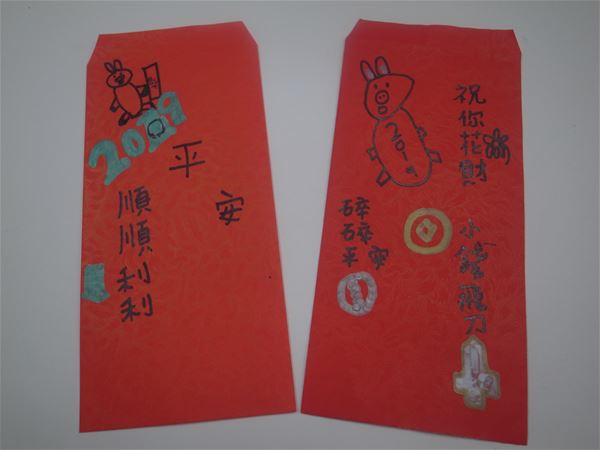 2019
平安
順順利利
2019
祝你花財
碎碎平安
小錢 刀